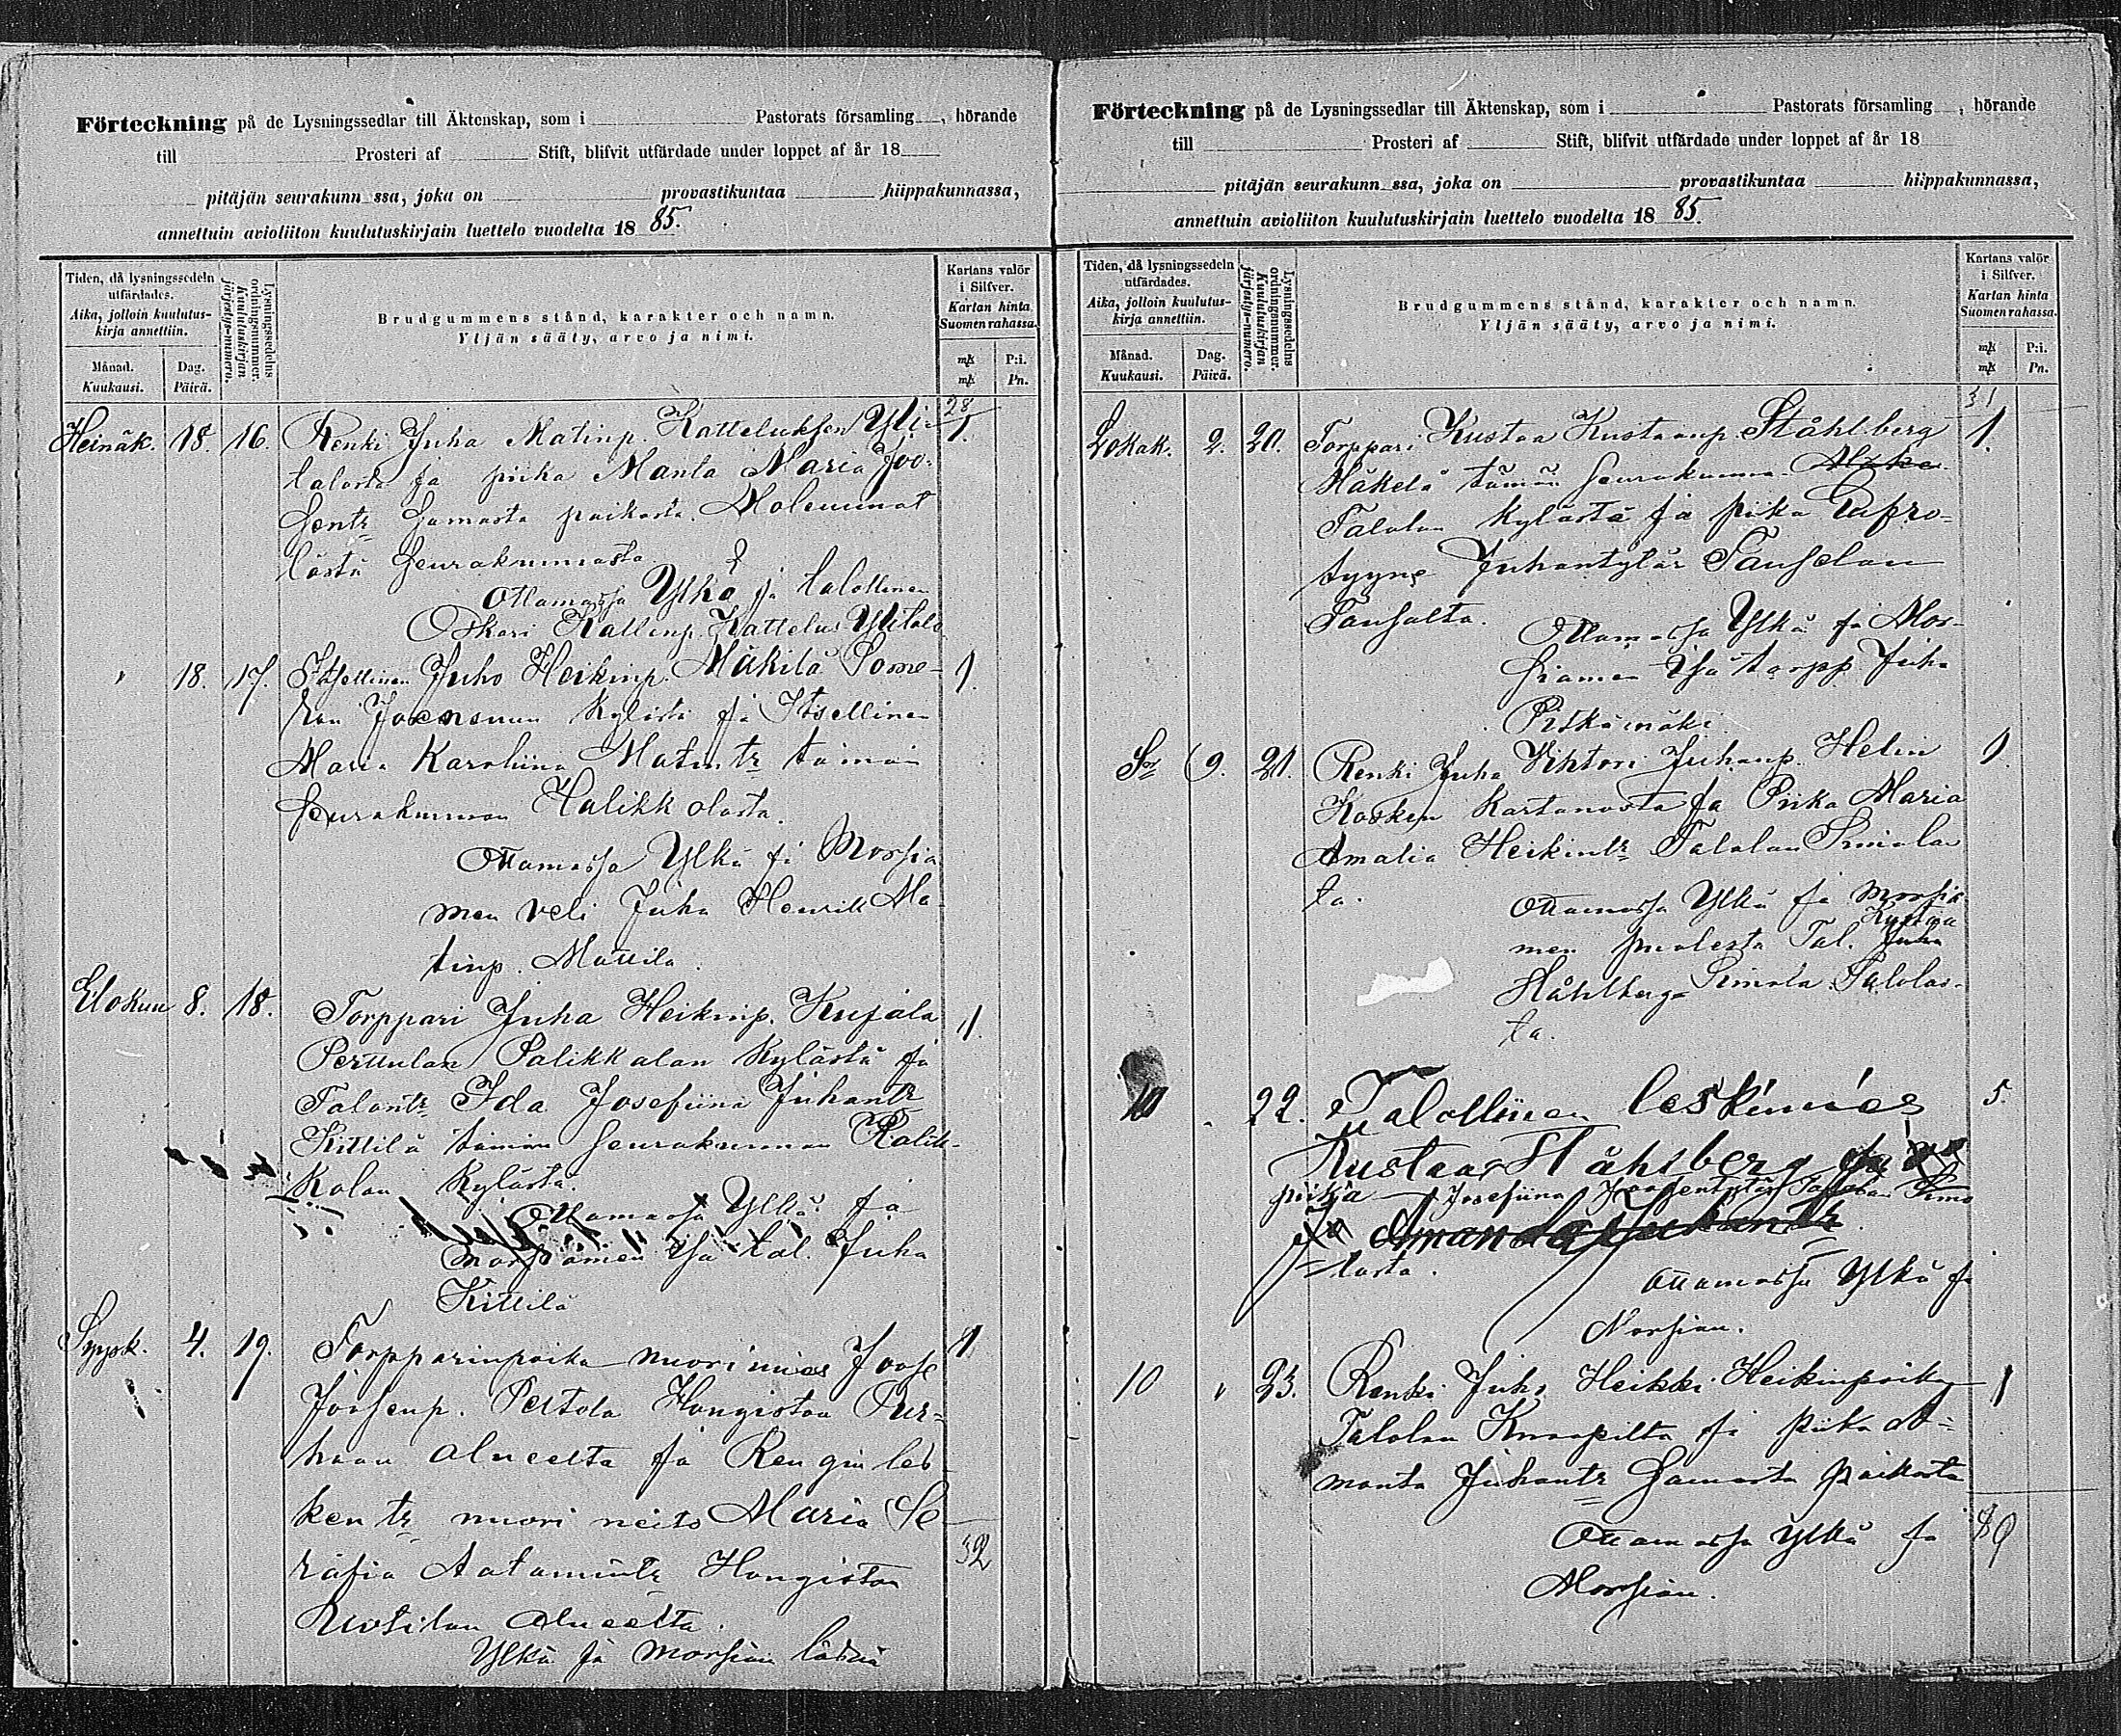 Förteckning på de Lysningssedlar till Äktenskap, som i Pastorats församling, hörande
till Prosteri af Stift, blifvit utfärdade under loppet af år 18
pitäjän seurakunn ssa, joka on provastikuntaa hiippakunnassa,
annettuin avioliiton kuulutuskirjain luettelo vuodelta 18 85.
Tiden, då lysningssedeln utfärdades.
Aika, jolloin kuulutus-kirja annettiin.
Månad. Kuukausi.
Dag. Päivä.
Lysningssedelns ordningsnummer.
Kuulutuskirjan järjestys-numero.
Brudgummens stånd, karakter och namn.
Yljän sääty, arvo ja nimi.
Kartans valör i Silfver.
Kartan hinta Suomen rahassa.
mk P:i.
mk Pn.
28
Heinäk. 18 16. Renki Juha Matinp. Katteluksen Yli- 1.
talosta ja piika Manta Maria Joo-
sentr samasta paikasta. Molemmat
tästä seurakunnasta
Ottamassa Ylkä ja talollinen
Oskari Kallenp. Kattelus Ylitalo
" 18. 17. Itsellinen Juho Heikinp. Mäkilä Some- 1.
ron Joensuun kylästä ja Itsellinen
Maria Karoliina Matintr tämän
seurakunnan Halikkolasta.
Ottamassa Ylkä ja Morsia
men veli Juha Henrik Ma-
tinp. Mattila.
Elokuu 8. 18. Torppari Juha Heikinp. Kujala 1.
Perttulan Palikkalan kylästä ja
Talontr Ida Josefiina Juhantr
Kittilä tämän seurakunnan Palik-
kalan kylästä.
Ottamassa Ylkä ja
morsiamen isä tal. Juha
Kittilä
Syysk. 4. 19. Torpparinpoika nuorimies Joose 1
Joosenp. Pertola Hongiston Pur-
haan alueelta ja Rengin les-
ken tr nuori neito Maria Se-
rafia Aatamintr Hongiston
Ruotilan alueelta.
32
Ylkä ja morsian läsnä
Förteckning på de Lysningssedlar till Äktenskap, som i Pastorats församling, hörande
till Prosteri af Stift, blifvit utfärdade under loppet af år 18
pitäjän seurakunn ssa, joka on provastikuntaa hiippakunnassa,
annettuin avioliiton kuulutuskirjain luettelo vuodelta 18 85.
Tiden, då lysningssedeln utfärdades.
Aika, jolloin kuulutus-kirja annettiin.
Månad. Kuukausi.
Dag. Päivä.
Lysningssedelns ordningsnummer.
Kuulutuskirjan järjestys-numero.
Brudgummens stånd, karakter och namn.
Yljän sääty, arvo ja nimi.
Kartans valör i Silfver.
Kartan hinta Suomen rahassa.
mk P:i.
mk Pn.
31
Lokak. 2. 20. Torppari Kustaa Kustaanp. Ståhlberg 1.
Mäkelä tämän seurakunnan
Talolan kylästä ja piika Eufro-
syyne Juhantytär Tauselan
Tausalta.
Ottamassa Ylkä ja Mor-
siamen isä torpp. Juha
Pitkämäki
9. 21. Renki Juha Vihtori Juhanp. Helin 1.
Kosken Kartanosta ja Piika Maria
Amalia Heikintr Talolan Simolas
ta.
Ottamassa Ylkä ja morsia
men puolesta Tal. Kustaa
Ståhlberg Simola Talolas-
ta.
10 22. Talollinen leskimies 5.
Kustaa Ståhlberg
piika Josefiina Joosentytär Talolan Simo
ja Amanda Juhantr
lasta.
Ottamassa Ylkä ja
Morsian.
10 " 23. Renki Juho Heikki Heikinpoika 1
Talolan Knaapilta ja piika A-
manta Juhantr samasta paikasta
Ottamassa Ylkä ja
Morsian.